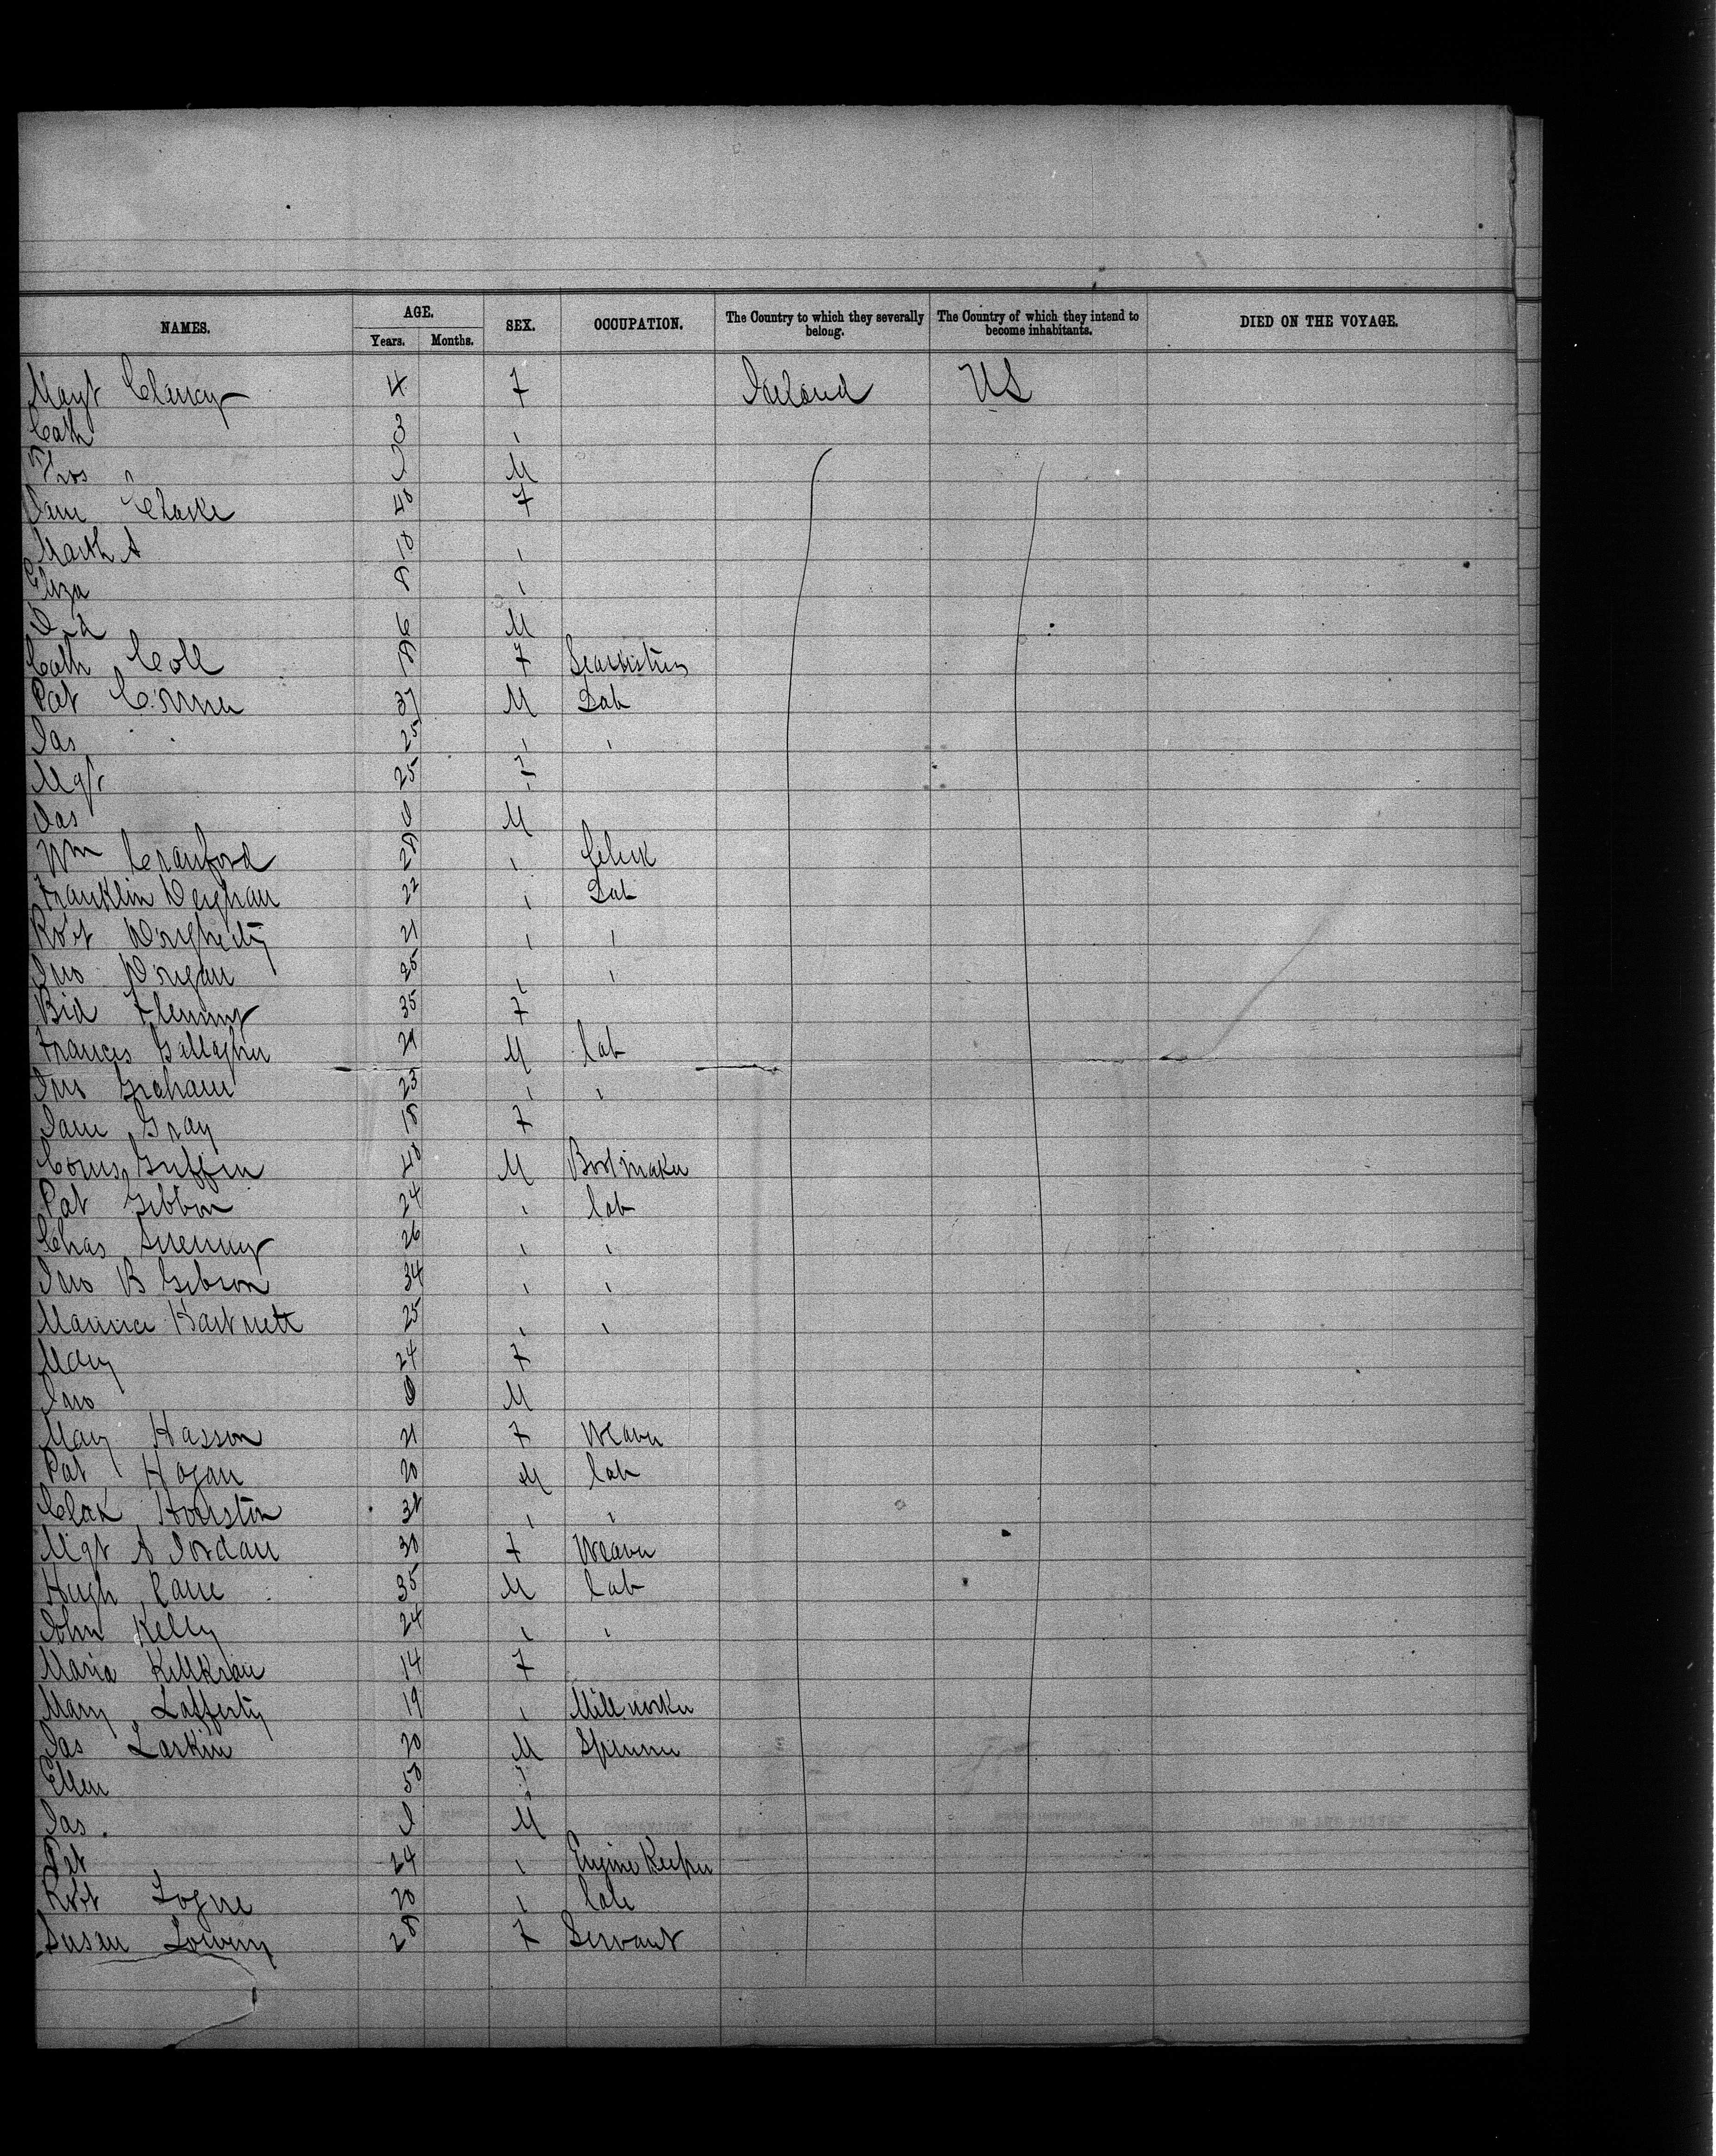 NAMES. AGE. SEX. OCCUPATION. The Country to which they severally belong. The Country of which they intend to become inhabitants. DIED ON THE VOYAGE.
Years. Months.
Margt Clancy 4 F Ireland US
Cath 3 "
Thos M
Jane Clarke 40 F
Marth A 10 "
Eliza 8 "
6 M
Cath Coll 18 F Seamstress
Pat 37 M Lab
Jas 25 " "
Mgt 25 F
Jas 0 M
Wm Cranford 28 " Clerk
Franklin Deighan 22 " Lab
Robt Dougherty 21 " "
Jno Dorgan 25 " "
Bid Fleming 35 F
Frances Gallagher 21 M lab
Jno Graham 23 " "
Jane Gray 18 F
Corns Griffin 40 M Bootmaker
Pat Gibbon 24 " lab
Chas 26 " "
Jno B Gibson 34 " "
Maurice Hartnett 25 " "
Mary 24 F
Jno 0 M
Mary Hasson 21 F Weaver
Pat Hogan 20 M lab
Houston " "
Mgt A Jordan 30 F Weaver
Hugh 35 M lab
John Kelly 24 " "
Maria 14 F
Mary Lafferty 19 " Mill worker
Jas Larkin 20 M Spinner
Ellen 50 F
Jas M
Pat 24 " Engine Keeper
Robt Logue 20 " lab
Susan Lowery 28 F Servant